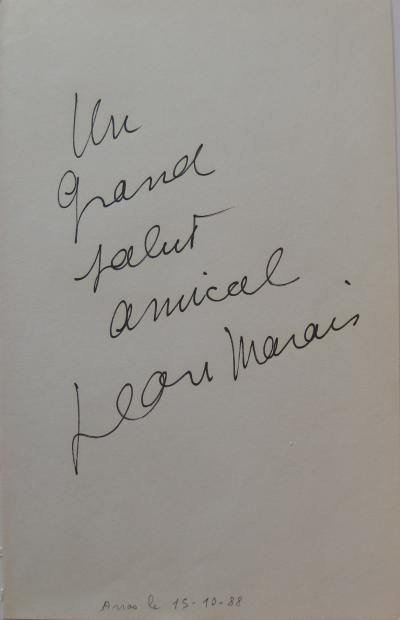 Un
grand
salut
amical
Jean Marais
Arras le 15-10-88